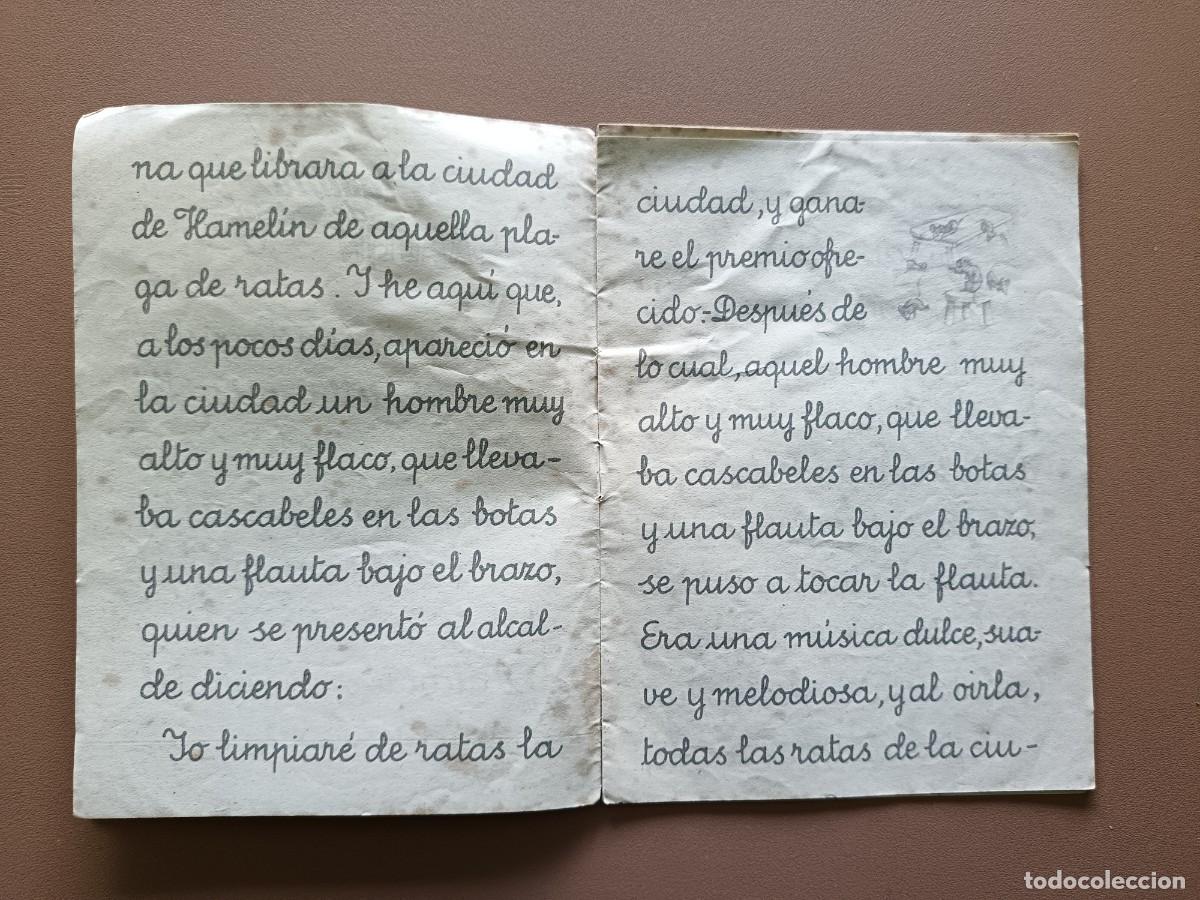 na que librara a la ciudad
de Hamelín de aquella pla-
ga de ratas. Y he aquí que,
a los pocos días, apareció en
la ciudad un hombre muy
alto y muy flaco, que lleva-
ba cascabeles en las botas
y una flauta bajo el brazo,
quien se presentó al alcal-
de diciendo:
Yo limpiaré de ratas la
ciudad, y gana-
re el premio ofre-
cido.-Después de
lo cual, aquel hombre muy
alto y muy flaco, que lleva-
ba cascabeles en las botas
y una flauta bajo el brazo,
se puso a tocar la flauta.
Era una música dulce, sua-
ve y melodiosa, y al oirla,
todas las ratas de la ciu-
todocoleccion